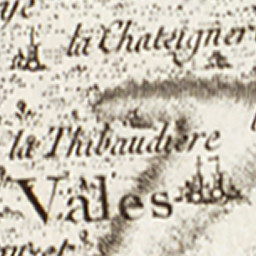 la Chateigner
la Thibaudiere
Vales